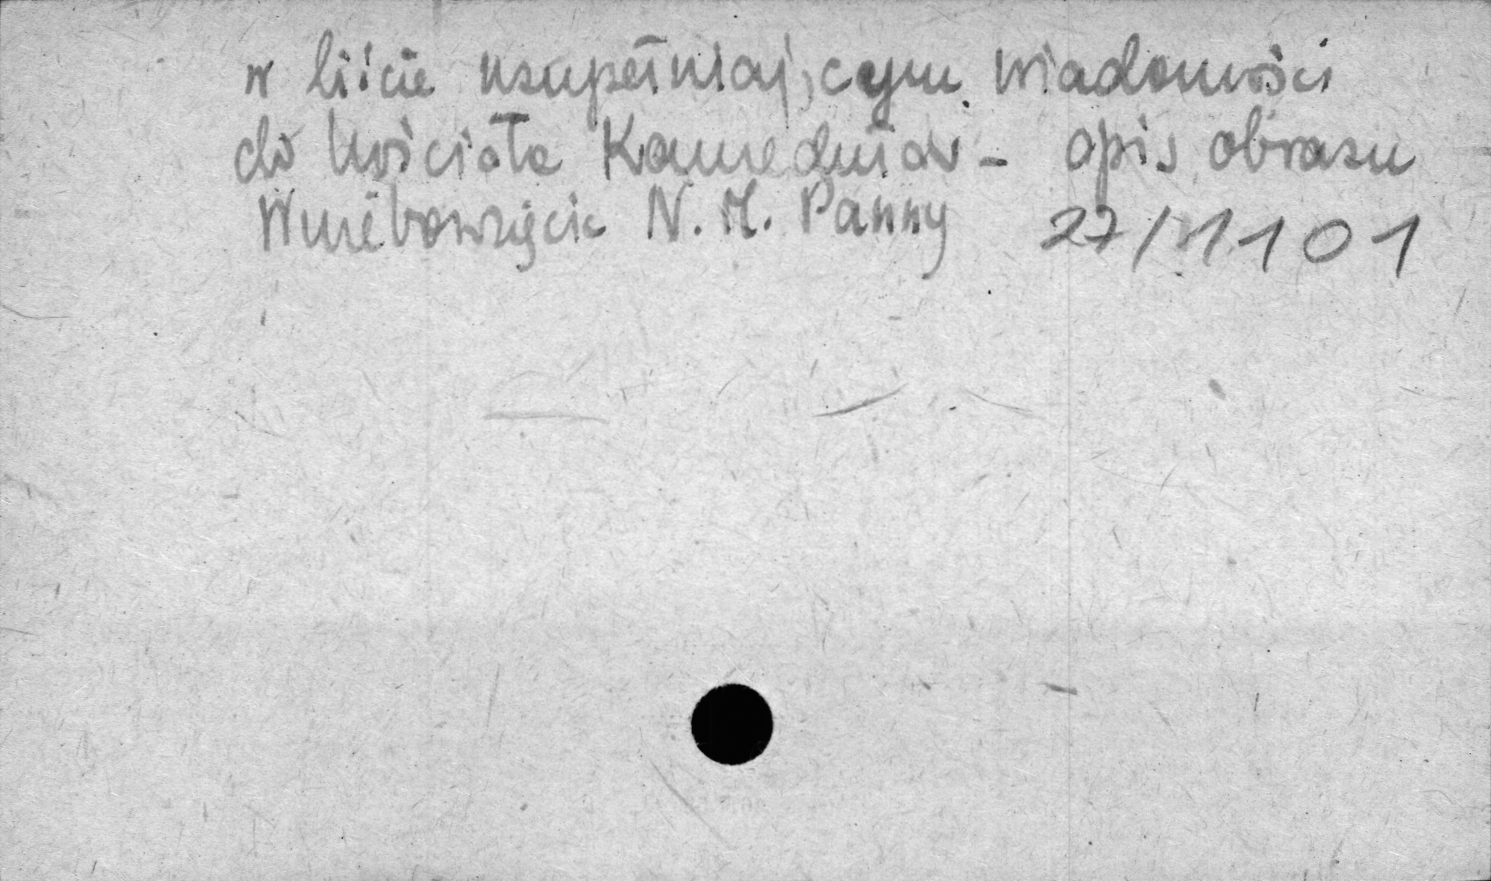 w liście uzupełniającym wiadomości
do kościoła Kamedułów - opis obrazu
Wniebowzięcie N. M. Panny 27/11101